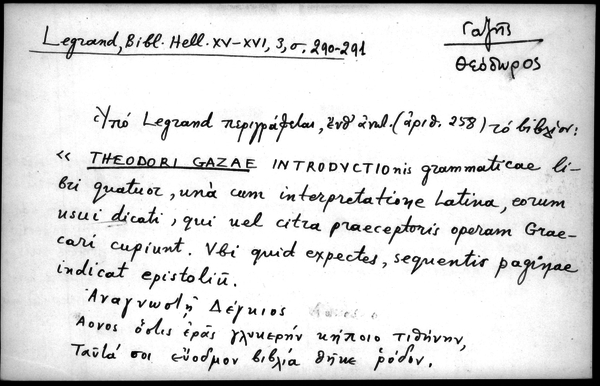 Legrand, Bibl. Hell. XV–XVI, 3, σ. 290-291
Γαζῆς
Θεόδωρος
Ὑπό Legrand περιγράφεται, ἔνθ' ἀνωτ. (ἀριθ. 258) τό βιβλίον:
« THEODORI GAZAE INTRODVCTIOnis grammaticae li-
bri quatuor, unà cum interpretatione Latina, eorum
usui dicati, qui uel citra praeceptoris operam Grae-
cari cupiunt. Vbi quid expectes, sequentis paginae
indicat epistoliū.
Ἀναγνωστῇ Δέγκιος
Αονος ὅστις ἐρᾷς γλυκερὴν κήποιο τιθήνην,
Ταῦτά σοι εὔοδμον βιβλία θῆκε ῥόδον.